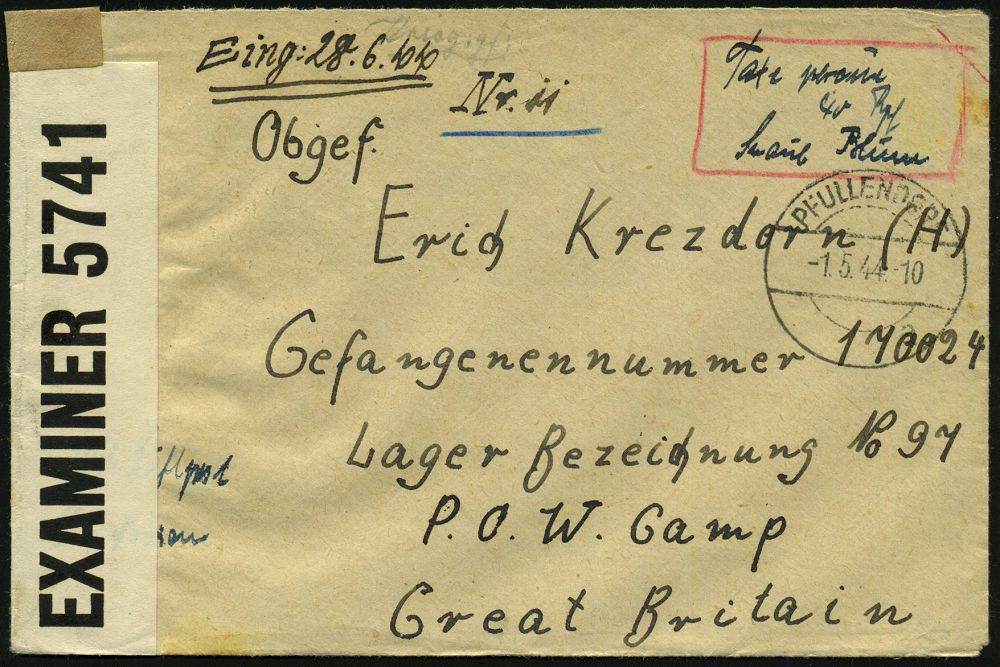 Eing: 28.6.44
Nr. 11
Taxe perçue
40 Rpf
Obgef.
PFULLENDORF
-1.5.44.-10
Erich Krezdorn (H)
Gefangenennummer 170024
Lager Bezeichnung No 97
P.O.W. Camp
Great Britain
EXAMINER 5741